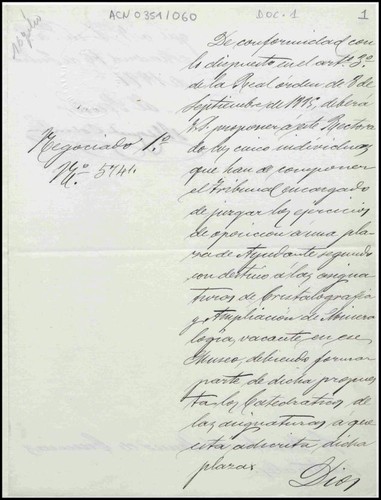 ACN 0351/060
DOC. 1
1
De conformidad con
lo dispuesto en el artº. 3º
de la Real órden de 8 de
Septiembre de 1895, deberá
V.S. proponer á este Rectora-
do los cinco individuos
que han de componer
el Tribunal encargado
de juzgar los ejercicios
de oposicion á una pla-
za de Ayudante segundo
con destino á las asigna-
turas de Cristalografía
y Ampliación de Minera-
logía, vacante en ese
Museo, debiendo formar
parte de dicha propues-
ta los Catedráticos de
las asignaturas á que
está adscrita dicha
plaza.
Dios
Negociado 1.º
Nº 5741.